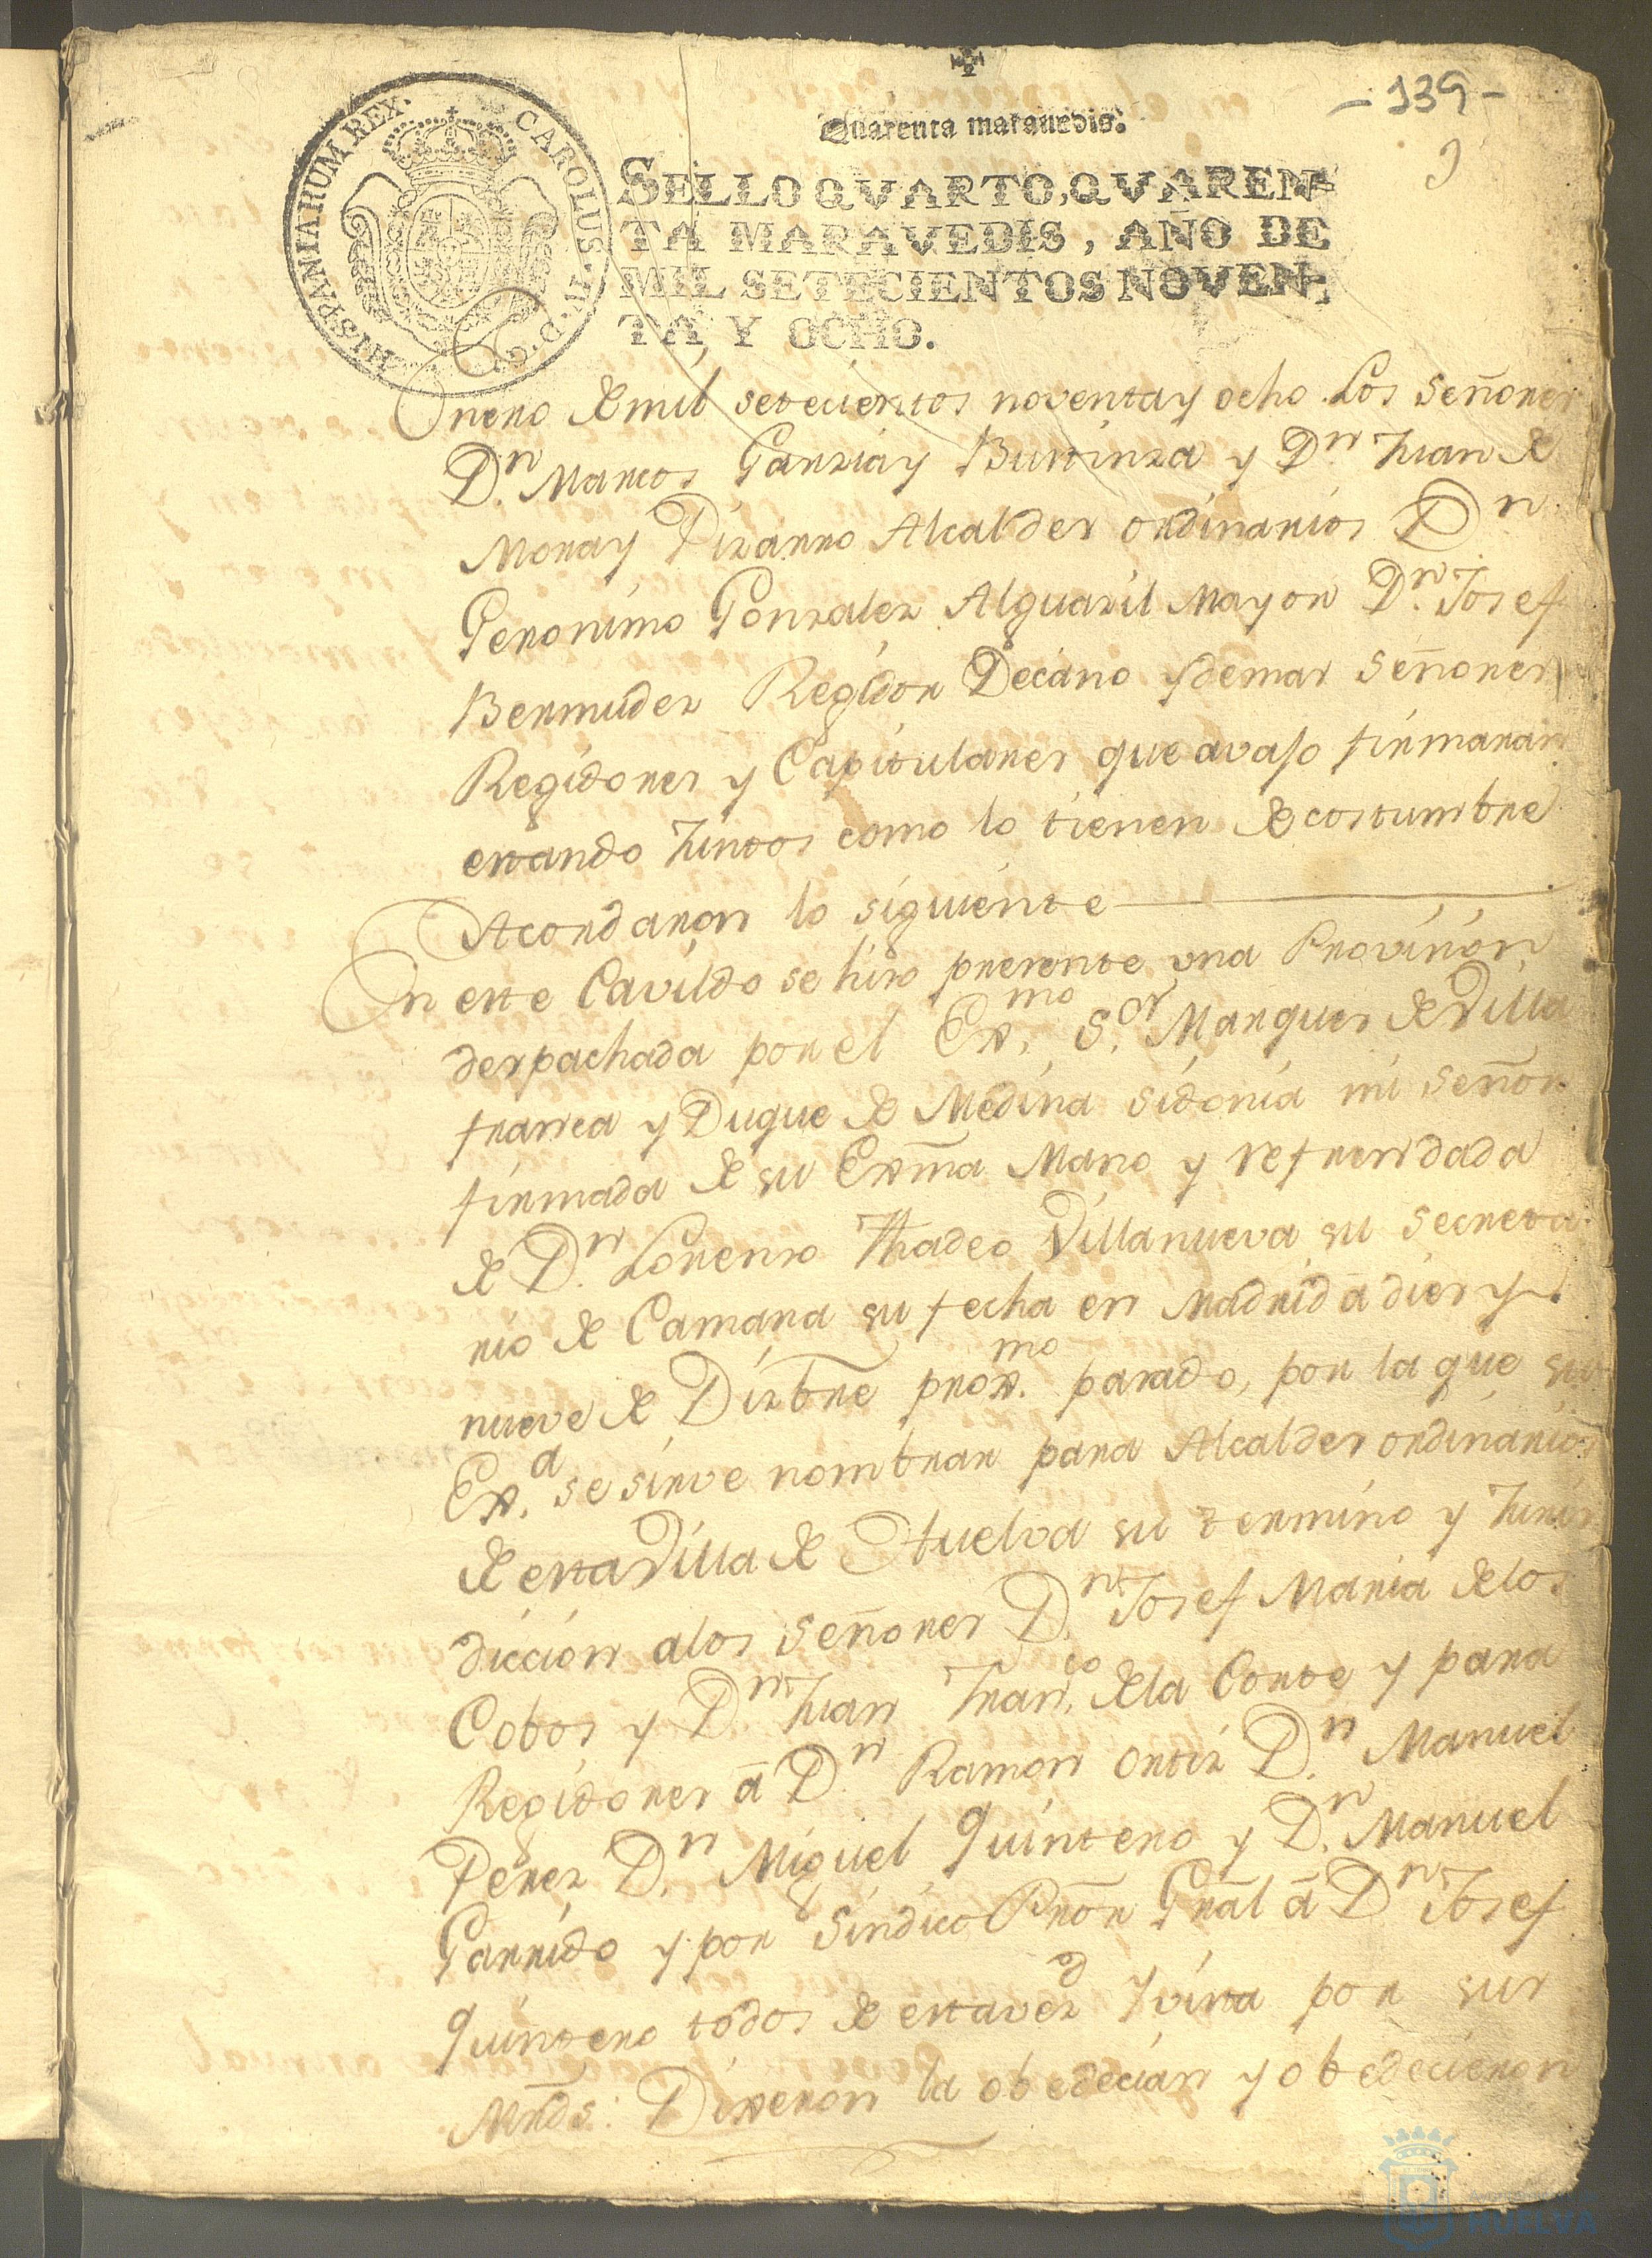 -139-
Quarenta maravedis.
SELLO QVARTO, QVAREN-
TA MARAVEDIS, AÑO DE
MIL SETECIENTOS NOVEN-
TA, Y OCHO.
CAROLUS. IV. D. G. HISPANIARUM REX.
Enero de mil setecientos noventa y ocho Los Señores
Dn. Marcos Garzia y Bustinza y Dn. Juan de
Mora y Pizarro Alcaldes ordinarios Dn.
Geronimo Gonzalez Alguazil Mayor Dn. Josef
Bermudez Regidor Decano y demas Señores
Regidores y Capitulares que avajo firmaran
estando Juntos como lo tienen de costumbre
Acordaron lo siguiente
En este Cavildo se hizo presente una Provision
despachada por el Exmo. Sor. Marques de Villa
franca y Duque de Medina Sidonia mi Señor
firmada de su Exma Mano y refrendada
de Dn. Lorenzo Thadeo Villanueva su Secreta
rio de Camara su fecha en Madrid a diez y
nueve de Dizbre proxmo. pasado, por la que su
Exa. se sirve nombrar para Alcaldes ordinarios
de esta Villa de Huelva su termino y Juris
diccion a los Señores Dn. Josef Maria de los
Cobos y Dn. Juan Franco. de la Corte y para
Regidores a Dn. Ramon Ortiz Dn. Manuel
Perez Dn. Miguel Quintero y Dn. Manuel
Garrido y por Sindico Pror Gral a Dn Josef
Quintero todos de esta vezd y vista por sus
Mrds. Dixeron la obedecian y obedecieron
HUELVA